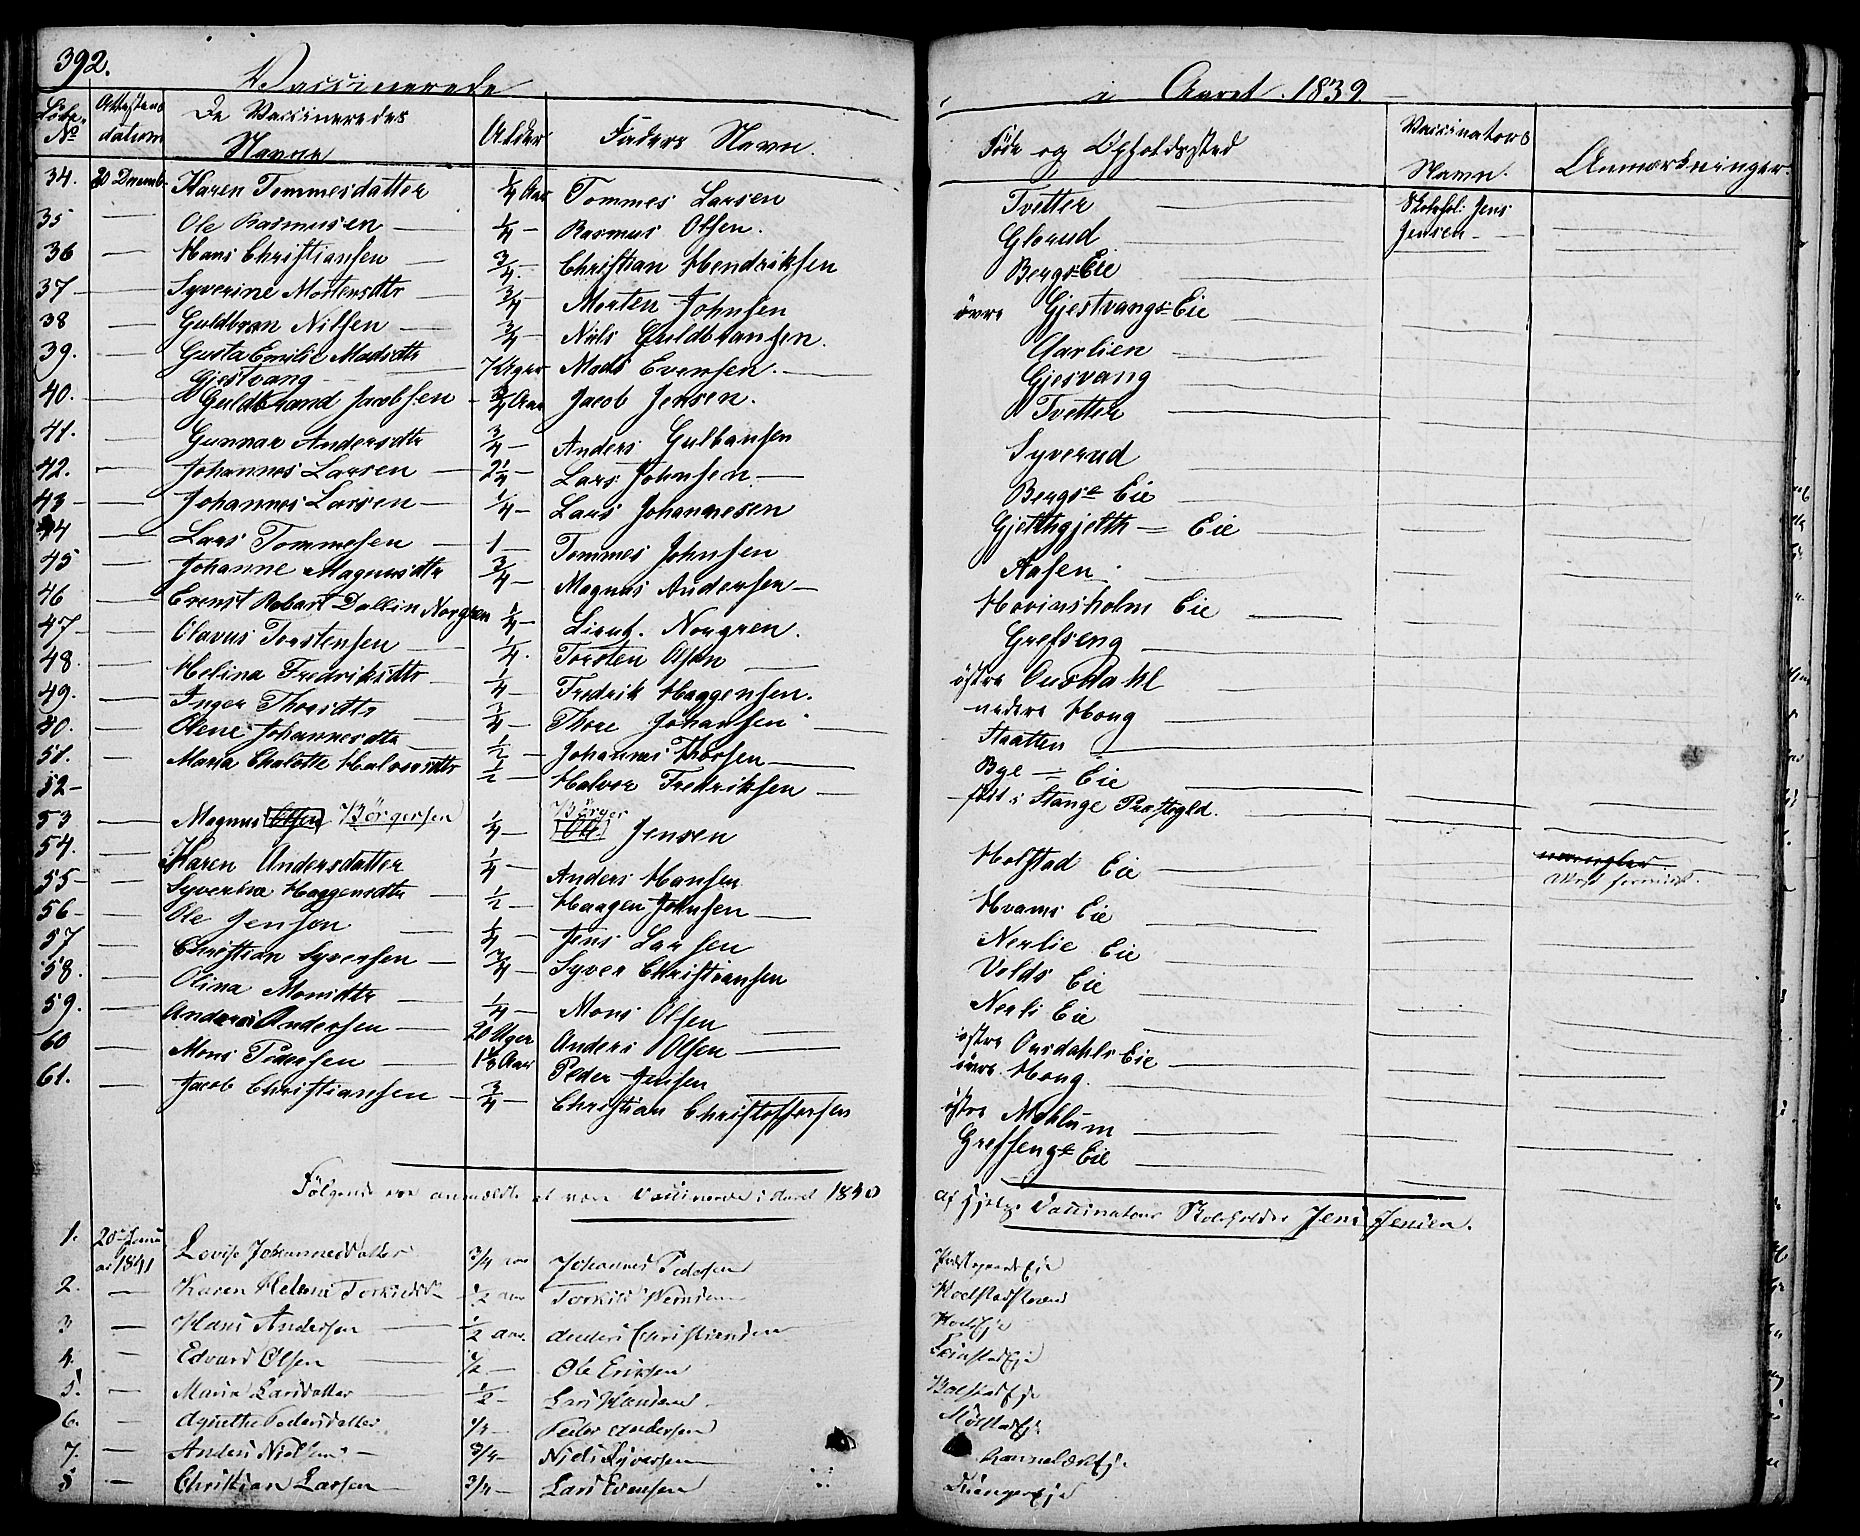 392.
Vaccinerede i Aaret 1839.
Løbe No | Attestens datum | De Vaccineredes Navne | Alder | Faders Navn. | Føde og Opholdssted | Vaccinatores Navn. | Anmærkninger.
34. 20 Decemb. Karen Tommesdatter 1/4 Aar Tommes Larsen Tvetter Skoehol: Jens Jensen
35 — Ole Rasmussen 1/4 — Rasmus Olsen. Glorud —
36 — Hans Christiansen 3/4 — Christian Hendriksen Bergs=Eie
37 — Syverine Mortensdtr 3/4 Morten Johnsen övre Gjestvangs=Eie
38 — Guldbran Nilsen 3/4 — Niels Guldbransen. Aarlien
39. — Gusta Emilie Madsdtr Gjestvang 7 Uger Mads Evensen. Gjesvang
40. — Guldbrand Jacobsen 3/4 Aar Jacob Jensen. Tvetter
41. — Gunnar Andersdtr 3/4 — Anders Gulbansen Syverud
42. — Johannes Larsen 2 1/4 — Lars Johnsen Bergs= Eie
43 — Johannes Larsen 1/4 — Lars Johannesen Gjetthgjelth = Eie
44 — Lars Tommesen 1 — Tommes Johnsen Aasen
45 — Johanne Magnusdtr 3/4 — Magnus Andersen Hovinsholm Eie
46 — Ernst Robart Dallin Norgren 1/4 — Lieut. Norgren. Grefseng
47 — Olavus Torstensen 1/4. Torsten Olsen östre Ousdahl
48. — Helina Fredriksdtr 1/4 — Fredrik Haggensen. nedre Hong
49. — Inger Thorsdtr 3/4 — Thore Johansen Staatten
50. — Olene Johannesdtr 1/2 — Johannes Thorsen Bye = Eie
51. — Maria Chalotte Halvorsdtr 1/2 — Halvor Fredriksen föst i Stange Præstegld.
52 —
53 — Magnus Olsen Börgersen 1/4 — Börger Ole Jensen Holstad Eie
54. — Karen Andersdatter 1/4 — Anders Hansen Hvams Eie
55 — Syverine Haggensdtr 1/2 — Haagen Johnsen Nerlie Eie
56 — Ole Jensen 1/4 — Jens Larsen Volds Eie
57 — Christian Syversen 3/4 — Syver Christiansen Nerli Eie
58. — Olina Monsdtr 1/4 — Mons Olsen östre Ousdahls Eie
59. — Anders Andersen 20 Uger Anders Olsen övre Hong.
60 — Mons Pedersen 1 1/2 Aar Peder Jensen östre Mehlum
61. — Jacob Christiansen 3/4 — Christian Christoffersen Greffengs Eie
Følgende ere anmældte at være Vaccinerede i Aaret 1840 af Hjelpe Vaccinateur Skoleholder Jens Jensen.
1. 20de Juni 1841 Lovise Johannesdatter 3/4 aar Johannes Pedersen
2. — Karen Helene Torkildsd 1/2 aar Torkild
3 — Hans Andersen 1/2 aar. Anders Christiansen
4. — Edvard Olsen 1/2 — Ole Ericsen
5. — Maria Larsdatter 1/2 — Lars Hansen
6. — Agnethe Pedersdatter Peder Andersen
7. — Anders Nielsen 3/4 — Niels Syversen
8 — Christian Larsen 3/4 — Lars Evensen